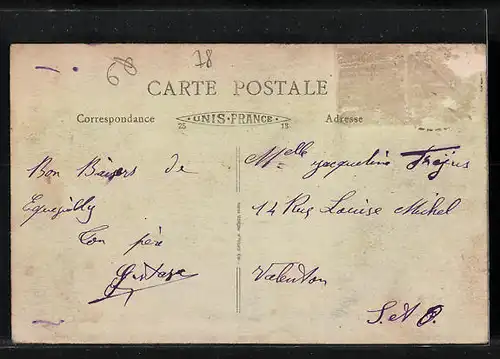 68
78
CARTE POSTALE
Correspondance
UNIS-FRANCE
Adresse
Bon Baisers de
Ton père
Gustave
Melle Jacqueline
14 Rue Louise Michel
Valenton
S. et O.